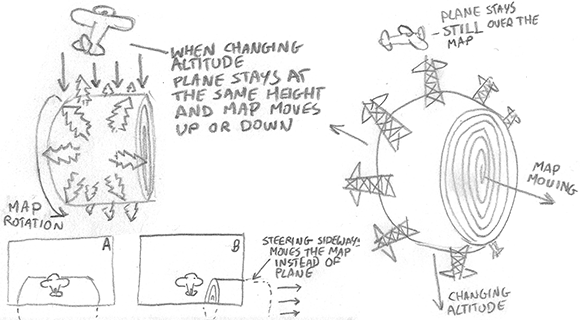 WHEN CHANGING
ALTITUDE
PLANE STAYS AT
THE SAME HEIGHT
AND MAP MOVES
UP OR DOWN
PLANE STAYS
STILL OVER THE
MAP
MAP
ROTATION
MAP
MOVING
A
B
STEERING SIDEWAY:
MOVES THE MAP
INSTEAD OF
PLANE
CHANGING
ALTITUDE